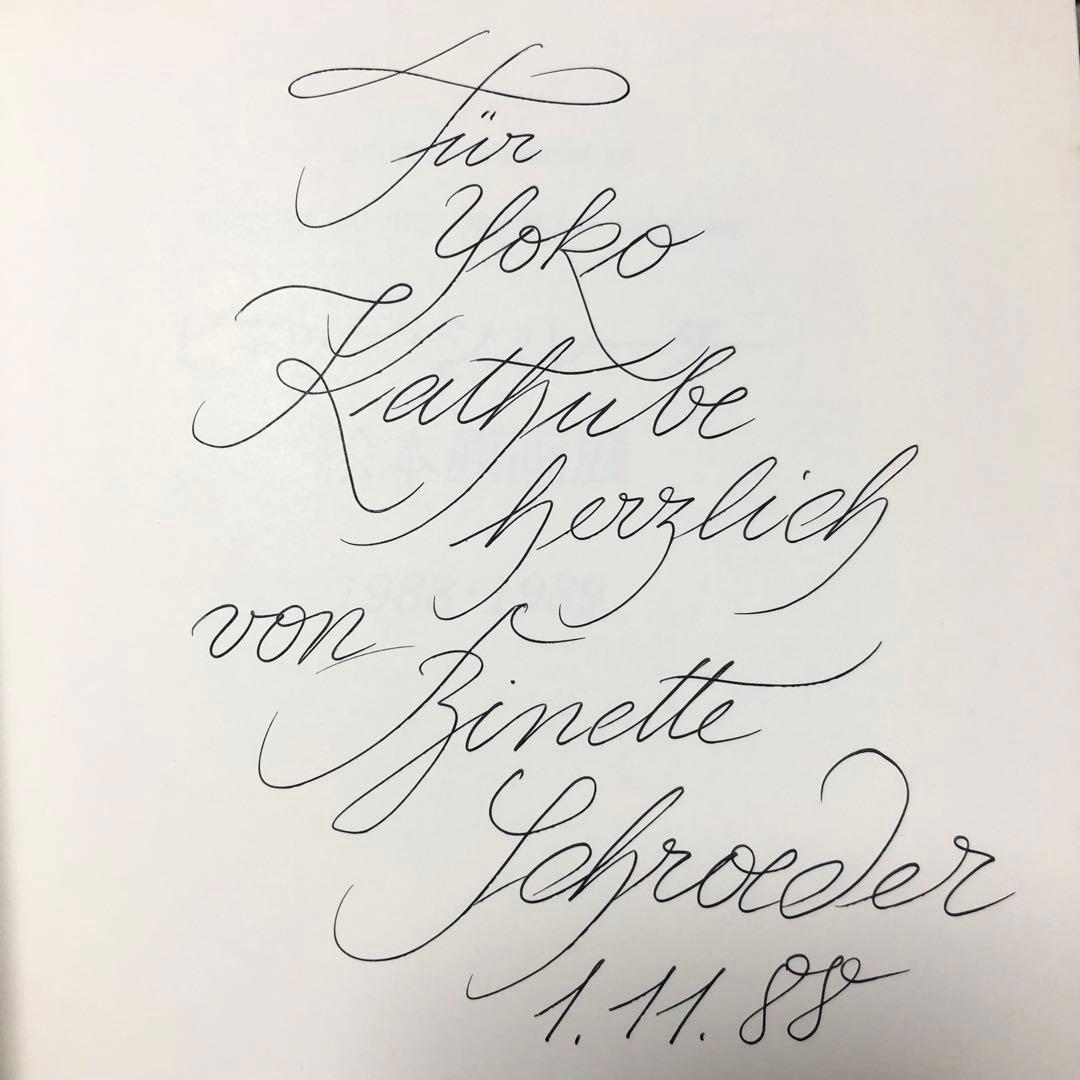 Für
Yoko
Kathube
herzlich
von Binette
Schroeder
1.11.88